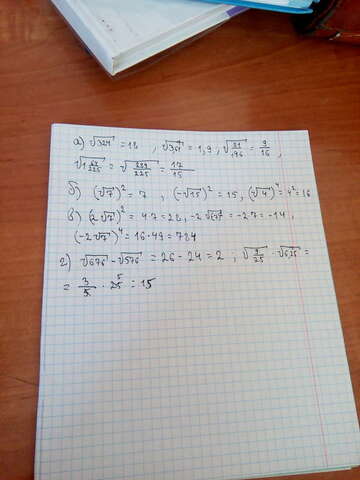 а) √324 = 18 , √361 = 1,9 , √81/196 = 9/16 ,
√1 64/225 = √289/225 = 17/15
б) (√7)² = 7 , (-√15)² = 15, (√4)⁴ = 4² = 16
в) (2√7)² = 4·7 = 28, -2√(7)² = -2·7 = -14,
(-2√7)⁴ = 16·49 = 784
г) √676 - √576 = 26 - 24 = 2 ; √9/25 · √625 =
= 3/5 · 25 5 = 15